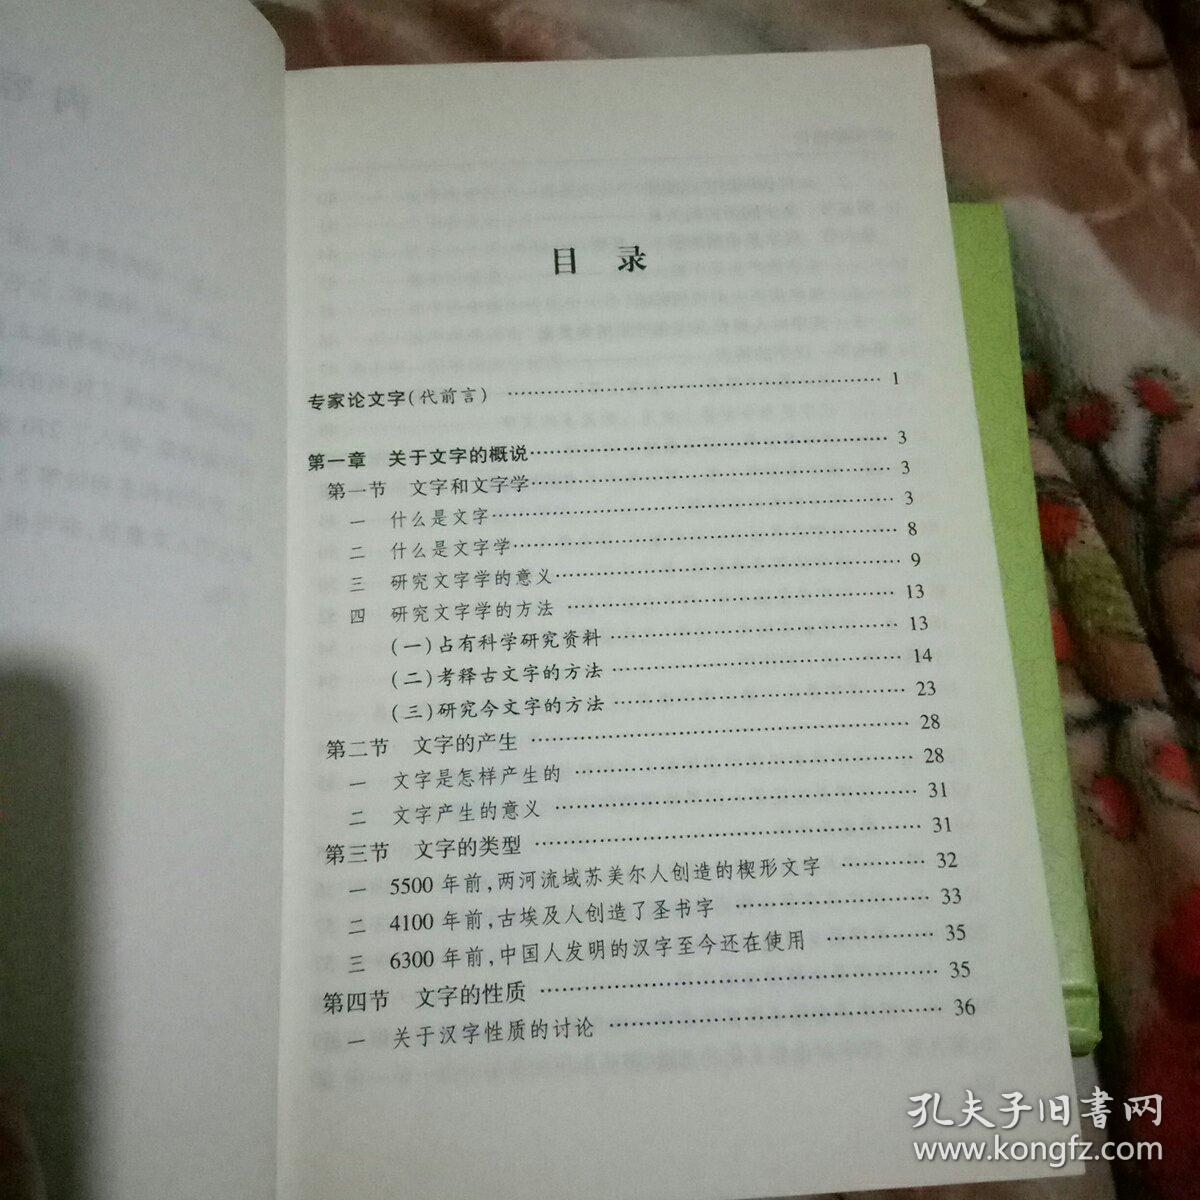 目 录
专家论文字(代前言) …… 1
第一章 关于文字的概说…… 3
第一节 文字和文字学…… 3
一 什么是文字…… 3
二 什么是文字学…… 8
三 研究文字学的意义…… 9
四 研究文字学的方法 …… 13
(一)占有科学研究资料 …… 13
(二)考释古文字的方法 …… 14
(三)研究今文字的方法 …… 23
第二节 文字的产生 …… 28
一 文字是怎样产生的 …… 28
二 文字产生的意义 …… 31
第三节 文字的类型 …… 31
一 5500 年前,两河流域苏美尔人创造的楔形文字 …… 32
二 4100 年前,古埃及人创造了圣书字 …… 33
三 6300 年前,中国人发明的汉字至今还在使用 …… 35
第四节 文字的性质 …… 35
一 关于汉字性质的讨论 …… 36
孔夫子旧書网
www.kongfz.com